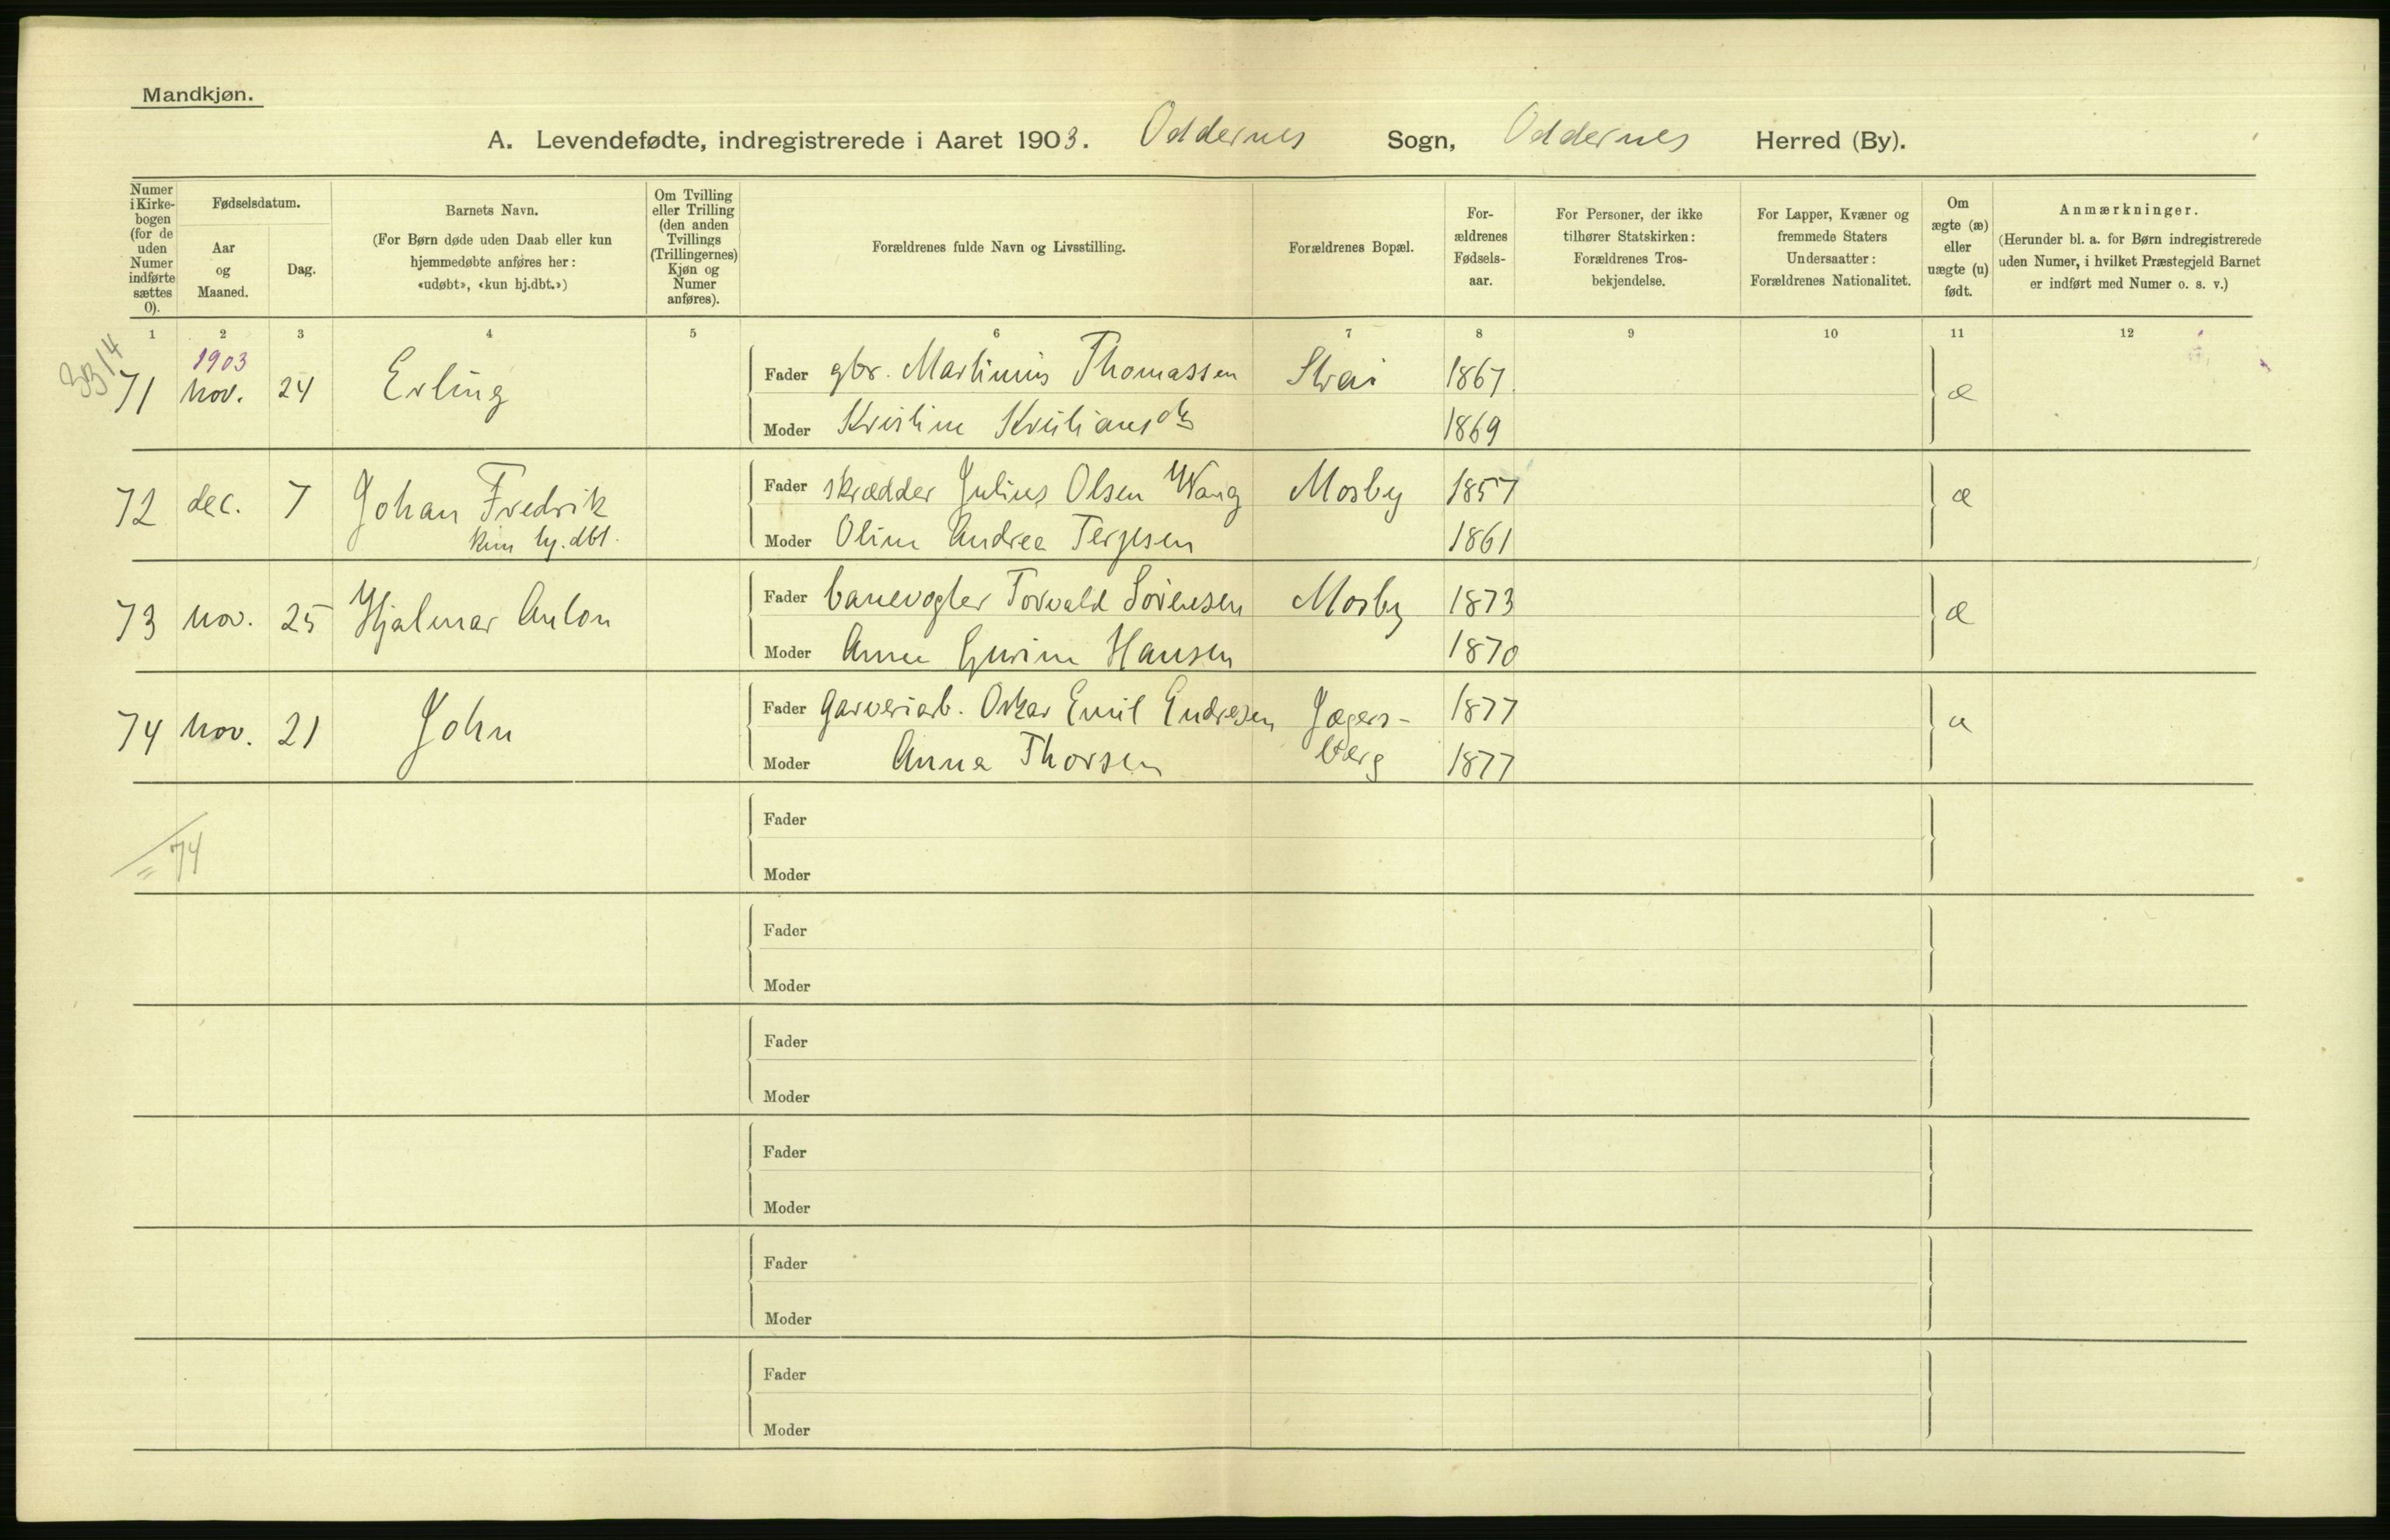 Mandkjøn.
A. Levendefødte, indregistrerede i Aaret 1903. Oddernes Sogn, Oddernes Herred (By).
Numer i Kirke- bogen (for de uden Numer indførte sættes 0).
Fødselsdatum.
Aar og Maaned.
Dag.
Barnets Navn.
(For Børn døde uden Daab eller kun
hjemmedøbte anføres her:
«udøbt», «kun hj.dbt.»)
Om Tvilling
eller Trilling
(den anden
Tvillings
(Trillingernes)
Kjøn og
Numer
anføres).
Forældrenes fulde Navn og Livsstilling.
Forældrenes Bopæl.
For-
ældrenes
Fødsels-
aar.
For Personer, der ikke
tilhører Statskirken:
Forældrenes Tros-
bekjendelse.
For Lapper, Kvæner og
fremmede Staters
Undersaatter:
Forældrenes Nationalitet.
Om
ægte (æ)
eller
uægte (u)
født.
Anmærkninger.
(Herunder bl. a. for Børn indregistrerede
uden Numer, i hvilket Præstegjeld Barnet
er indført med Numer o. s. v.)
1 2 3 4 5 6 7 8 9 10 11 12
3314
1903
71 nov. 24 Erling Fader gbr. Martinius Thomassen Strai 1867 æ
Moder Kristine Kristiansdtr 1869
72 dec. 7 Johan Fredrik Fader skrædder Julius Olsen Wang Mosby 1857 æ
kun hj.dbt. Moder Oline Andrea Terjesen 1861
73 nov. 25 Hjalmar Anton Fader banevogter Torvald Sørensen Mosby 1873 æ
Moder Anne Gurine Hansen 1870
74 nov. 21 John Fader garveriarb. Oskar Emil Endresen Jægers- 1877 u
Moder Anna Thorsen berg 1877
= 74
Fader
Moder
Fader
Moder
Fader
Moder
Fader
Moder
Fader
Moder
Fader
Moder